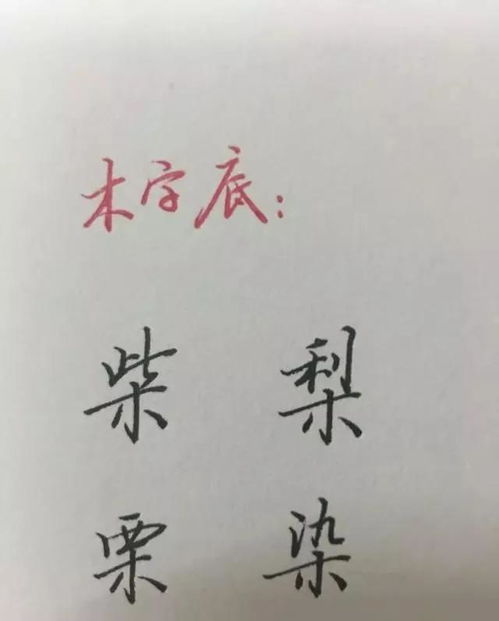 木字底:
柴 梨
栗 染